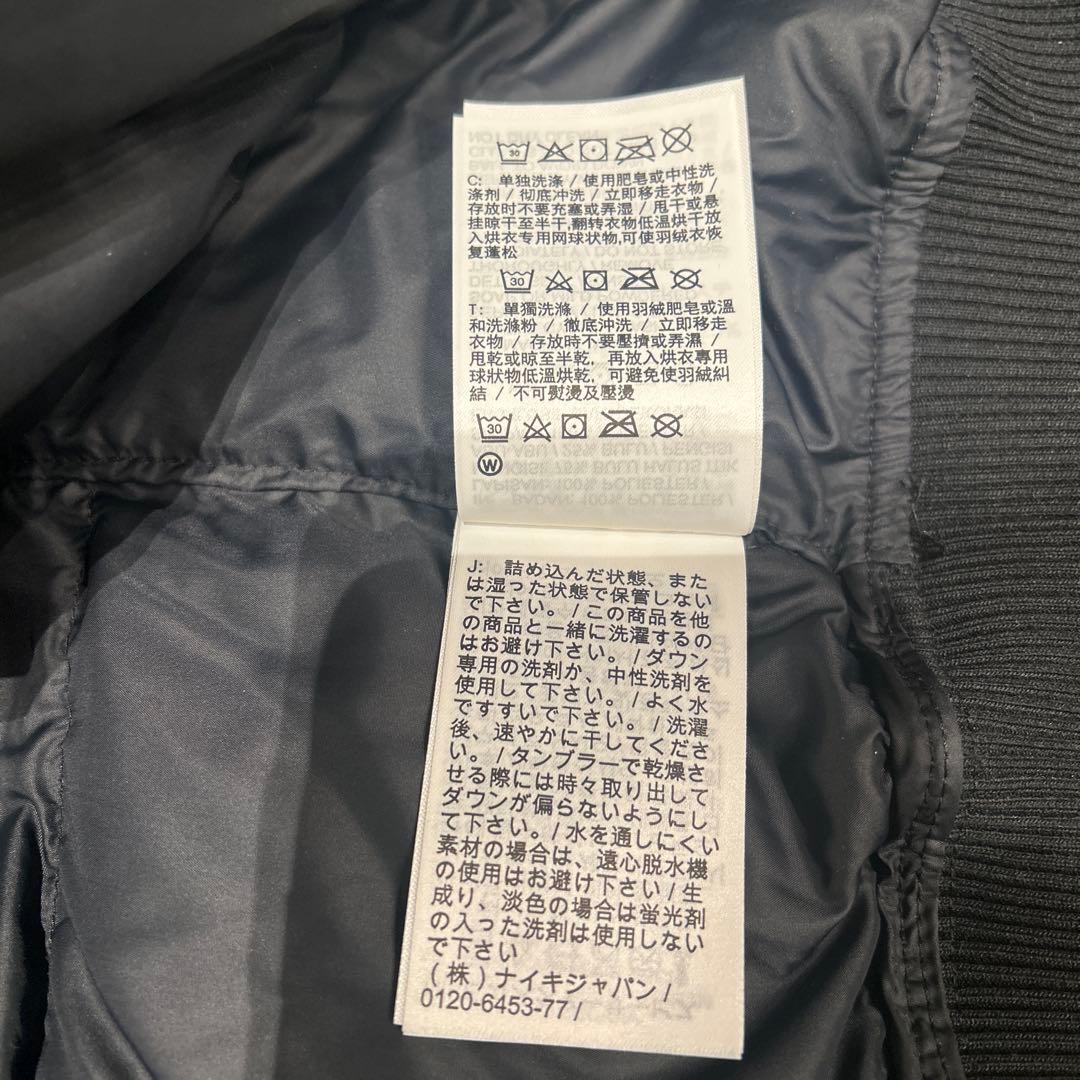 30
C: 单独洗涤 / 使用肥皂或中性洗
涤剂 / 彻底冲洗 / 立即移走衣物 /
存放时不要充塞或弄湿 / 甩干或悬
挂晾干至半干,翻转衣物低温烘干放
入烘衣专用网球状物,可使羽绒衣恢
复蓬松
30
T: 單獨洗滌 / 使用羽絨肥皂或溫
和洗滌粉 / 徹底沖洗 / 立即移走
衣物 / 存放時不要壓擠或弄濕 /
甩乾或晾至半乾，再放入烘衣專用
球狀物低溫烘乾，可避免使羽絨糾
結 / 不可熨燙及壓燙
30
W
J: 詰め込んだ状態、また
は湿った状態で保管しない
で下さい。/ この商品を他
の商品と一緒に洗濯するの
はお避け下さい。/ ダウン
専用の洗剤か、中性洗剤を
使用して下さい。/ よく水
ですすいで下さい。/ 洗濯
後、速やかに干してくださ
い。/ タンブラーで乾燥さ
せる際には時々取り出して
ダウンが偏らないようにし
て下さい。/ 水を通しにくい
素材の場合は、遠心脱水機
の使用はお避け下さい / 生
成り、淡色の場合は蛍光剤
の入った洗剤は使用しない
で下さい
(株) ナイキジャパン /
0120-6453-77 /